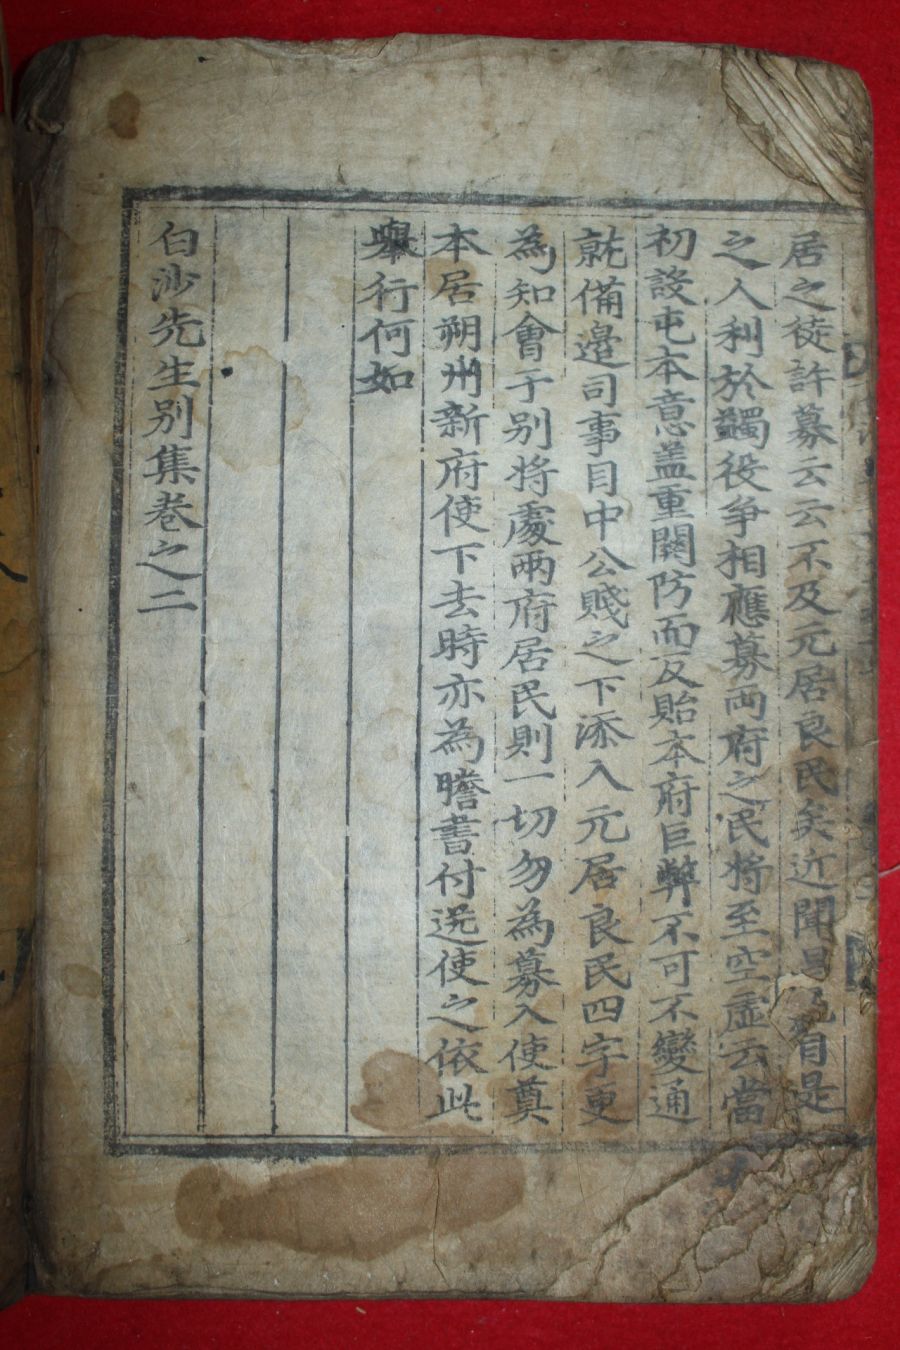 居之徒許募云云不及元居良民矣近聞昌自是
之人利於蠲役爭相應募两府之民將至空虛云當
初設屯本意盖重關防而反貽本府巨弊不可不變通
就備邊司事目中公賤之下添入元居良民四字更
為知會于别將處兩府居民則一切勿為募入使奠
本居朔州新府使下去時亦為謄書付送使之依此
舉行何如
白沙先生别集卷之二